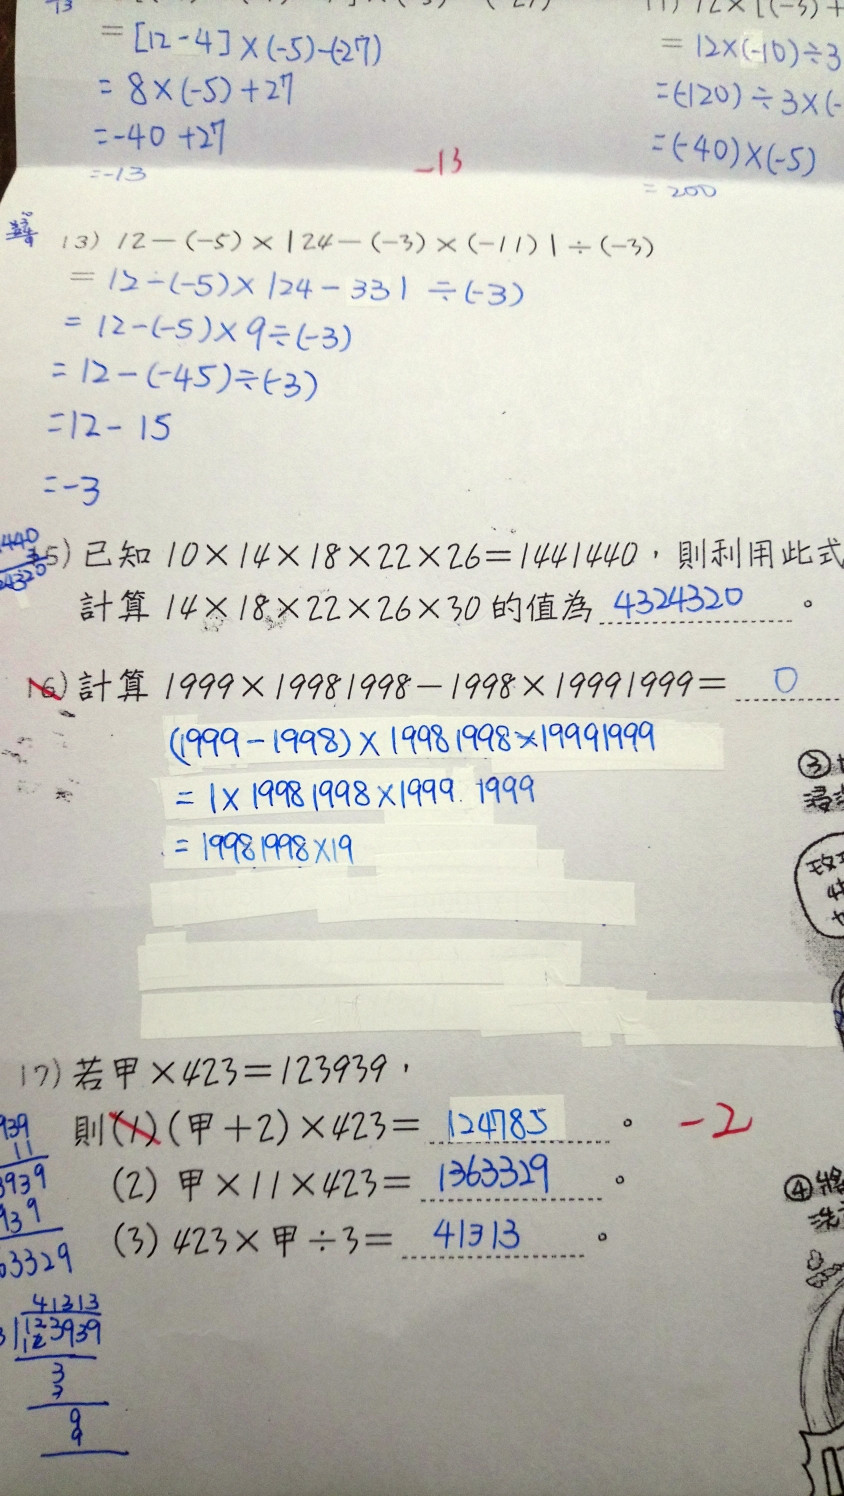 = [12-4]×(-5)-(-27)
= 12×(-10)÷3
= 8×(-5)+27
=(-120)÷3×(-
=-40+27
=(-40)×(-5)
=-13
-13
= 200
13) 12-(-5)×|24-(-3)×(-11)|÷(-3)
= 12-(-5)×|24-33|÷(-3)
= 12-(-5)×9÷(-3)
= 12-(-45)÷(-3)
=12-15
=-3
5) 已知 10×14×18×22×26=1441440,則利用此式
計算 14×18×22×26×30 的值為 4324320 。
16) 計算 1999×19981998-1998×19991999= 0
(1999-1998)×19981998×19991999
= 1×19981998×1999 1999
= 19981998×19
③
17) 若甲×423=123939,
則(1)(甲+2)×423= 124785 。 -2
(2) 甲×11×423= 1363329 。
(3) 423×甲÷3= 41313 。
④將
洗
939
11
3939
939
63329
41313
123939
12
3
3
9
9